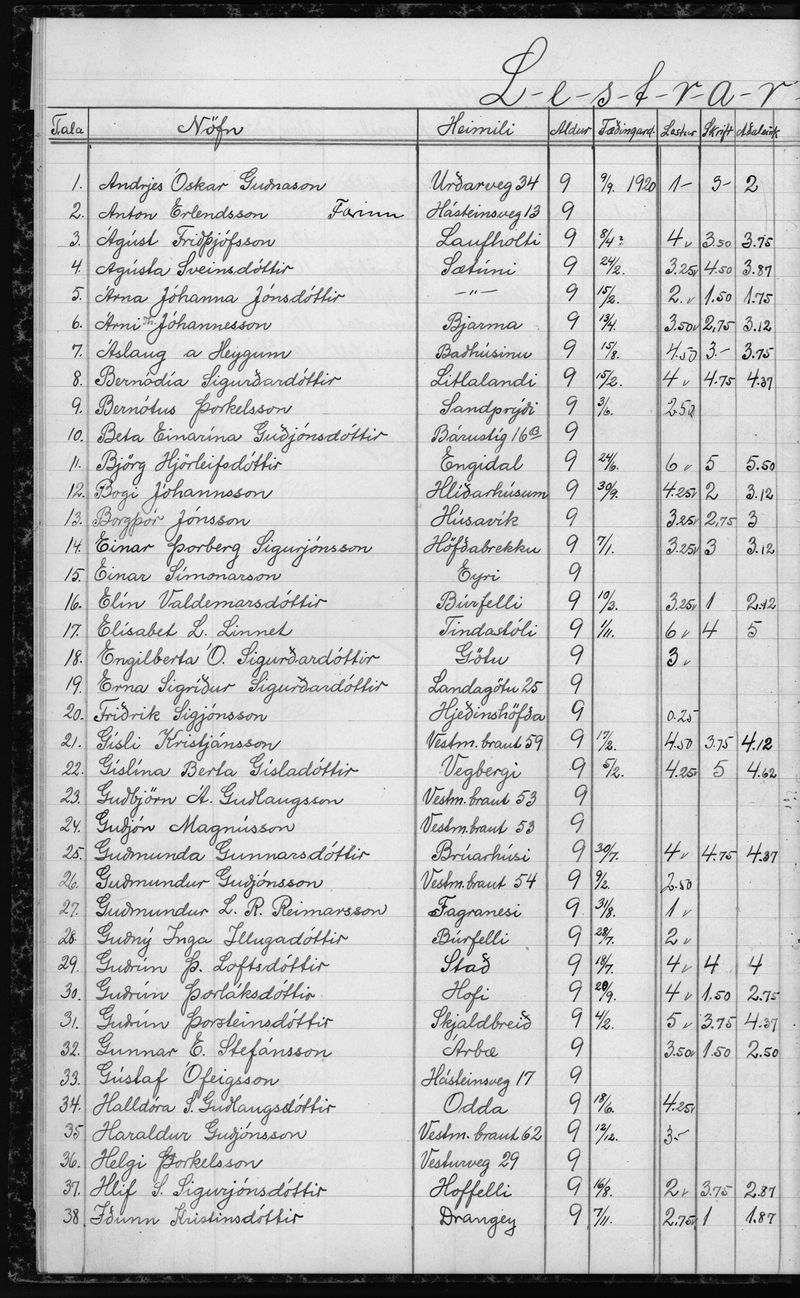 L-e-s-t-r-a-r-
Tala Nöfn Heimili Aldur Fæðingard. Lestur Skrift Aðaleink
1. Andrjes Óskar Guðnason Urðarveg 34 9 9/9. 1920 1- 3- 2
2. Anton Erlendsson Farinn Hásteinsveg 13 9
3. Ágúst Friðþjófsson Laufholti 9 8/4? 4 v 3.50 3.75
4. Ágústa Sveinsdóttir Sætúni 9 24/2. 3.25v 4.50 3.87
5. Árna Jóhanna Jónsdóttir -"- 9 15/2. 2.v 1.50 1.75
6. Árni Th. Jóhannesson Bjarma 9 13/4. 3.50v 2,75 3.12
7. Áslaug a Heygum Baðhúsinu 9 15/8. 4.50 3.- 3.75
8. Bernódía Sigurðardóttir Litlalandi 9 15/2. 4 v 4.75 4.37
9. Bernótus Þorkelsson Sandprýði 9 3/6. 2.50
10. Beta Einarína Guðjónsdóttir Bárustíg 16B 9
11. Björg Hjörleifsdóttir Engidal 9 24/6. 6 v 5 5.50
12. Bogi Jóhannsson Hlíðarhúsum 9 30/9. 4.25v 2 3.12
13. Borgþór Jónsson Húsavík 9 3.25v 2,75 3
14. Einar Þorberg Sigurjónsson Höfðabrekku 9 7/1. 3.25v 3 3.12
15. Einar Símonarson Eyri 9
16. Elín Valdemarsdóttir Búrfelli 9 10/3. 3.25v 1 2.12
17. Elísabet L. Linnet Tindastóli 9 1/11. 6 v 4 5
18. Engilberta Ó. Sigurðardóttir Götu 9 3 v
19. Erna Sigríður Sigurðardóttir Landagötu 25 9
20. Friðrik Sigjónsson Hjeðinshöfða 9 0.25
21. Gísli Kristjánsson Vestm. braut 59 9 17/2. 4.50 3.75 4.12
22. Gíslína Berta Gísladóttir Vegbergi 9 5/2. 4.25v 5 4.62
23. Guðbjörn Á. Guðlaugsson Vestm. braut 53 9
24. Guðjón Magnússon Vestm. braut 53 9
25. Guðmunda Gunnarsdóttir Brúarhúsi 9 30/7. 4 v 4.75 4.37
26. Guðmundur Guðjónsson Vestm. braut 54 9 9/2. 2.50
27. Guðmundur L. R. Reimarsson Fagranesi 9 31/8. 1 v
28. Guðný Inga Illugadóttir Búrfelli 9 28/7. 2 v
29. Guðrún Þ. Loftsdóttir Stað 9 18/7. 4 v 4 4
30. Guðrún Þorláksdóttir Hofi 9 20/9. 4 v 1.50 2.75
31. Guðrún Þorsteinsdóttir Skjaldbreið 9 4/2. 5 v 3.75 4.37
32. Gunnar E. Stefánsson Árbæ 9 3.50v 1.50 2.50
33. Gústaf Ófeigsson Hásteinsveg 17 9
34. Halldóra S. Guðlaugsdóttir Odda 9 18/6. 4.25v
35 Haraldur Guðjónsson Vestm. braut 62 9 12/12. 3.-
36. Helgi Þorkelsson Vesturveg 29 9
37. Hlíf S. Sigurjónsdóttir Hoffelli 9 16/8. 2 v 3.75 2.87
38 Iðunn Kristinsdóttir Drangey 9 7/11. 2.75v 1 1.87